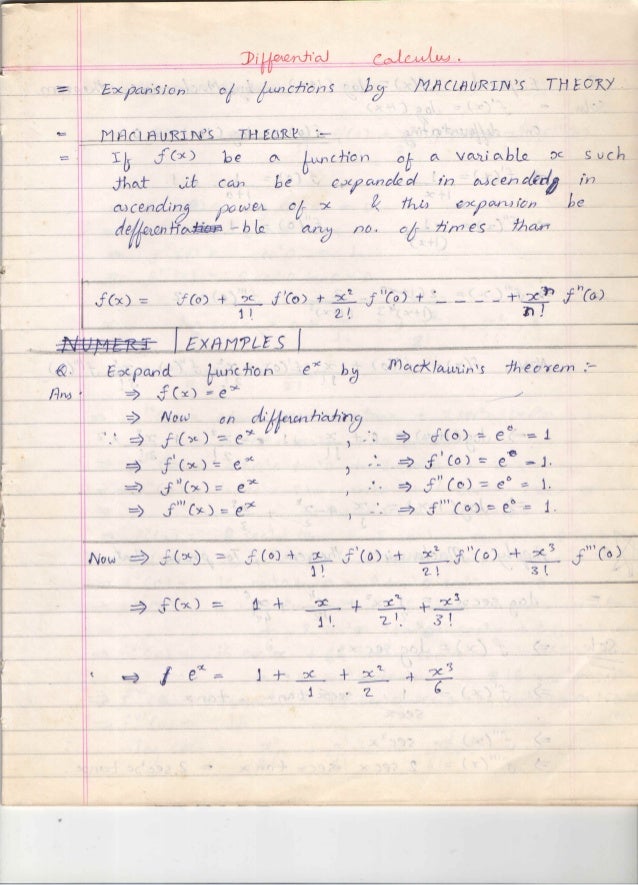 Differential Calculus.
= Expansion of functions by MACLAURIN'S THEORY
= MACLAURIN'S THEORY :-
= If f(x) be a function of a variable x such
that it can be expanded in ascending in
ascending power of x & this expansion be
defferentiation-ble any no. of times than
f(x) = f(0) + x/1! f'(0) + x²/2! f''(0) + - - - - + xⁿ/n! fⁿ(0)
NUMERI | EXAMPLES |
Q. Expand function eˣ by Macklaurin's theorem :-
Ans. ⇒ f(x) = eˣ
⇒ Now on differentiating
∵ ⇒ f(x) = eˣ , ∴ ⇒ f(0) = e⁰ = 1
⇒ f'(x) = eˣ , ∴ ⇒ f'(0) = e⁰ = 1.
⇒ f''(x) = eˣ , ∴ ⇒ f''(0) = e⁰ = 1.
⇒ f'''(x) = eˣ , ∴ ⇒ f'''(0) = e⁰ = 1.
Now ⇒ f(x) = f(0) + x/1! f'(0) + x²/2! f''(0) + x³/3! f'''(0)
⇒ f(x) = 1 + x/1! + x²/2! + x³/3!
⇒ eˣ = 1 + x/1 + x²/2 + x³/6